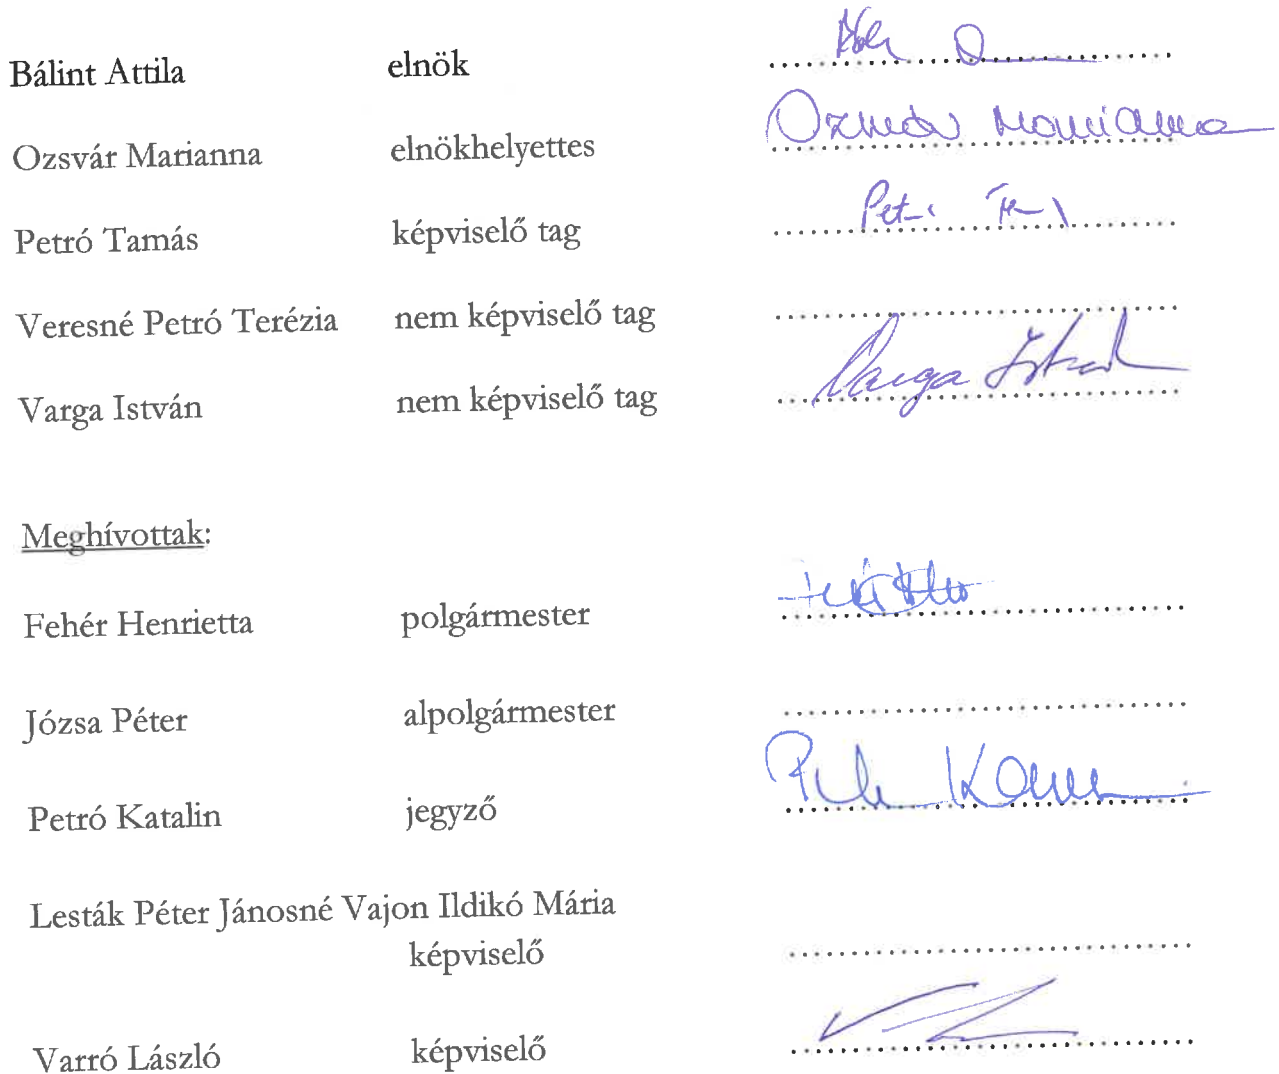 Bálint Attila elnök
Ozsvár Marianna elnökhelyettes Ozsvár Marianna
Petró Tamás képviselő tag
Veresné Petró Terézia nem képviselő tag
Varga István nem képviselő tag Varga István
Meghívottak:
Fehér Henrietta polgármester
Józsa Péter alpolgármester
Petró Katalin jegyző
Lesták Péter Jánosné Vajon Ildikó Mária
képviselő
Varró László képviselő